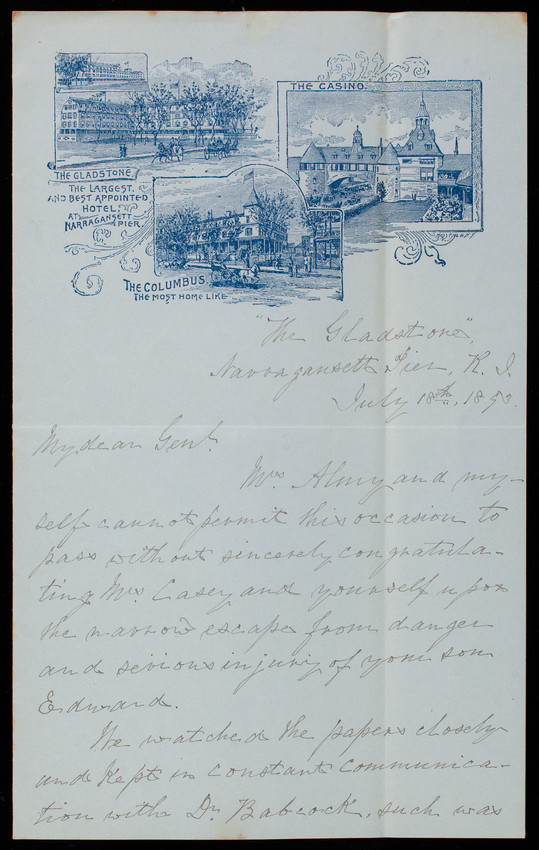 THE GLADSTONE.
THE LARGEST,
AND BEST APPOINTED
HOTEL,
AT
NARRAGANSETT
PIER.
THE CASINO.
THE COLUMBUS.
THE MOST HOME LIKE
"The Gladstone",
Narragansett Pier, R. I.
July 18th, 1893.
My dear Genl.
Mrs Almy and my-
self cannot permit this occasion to
pass without sincerely congratula-
ting Mrs Casey and yourself upon
the narrow escape from danger
and serious injury of your son
Edward.
We watched the papers closely
and kept in constant communica-
tion with Dr Babcock, such was